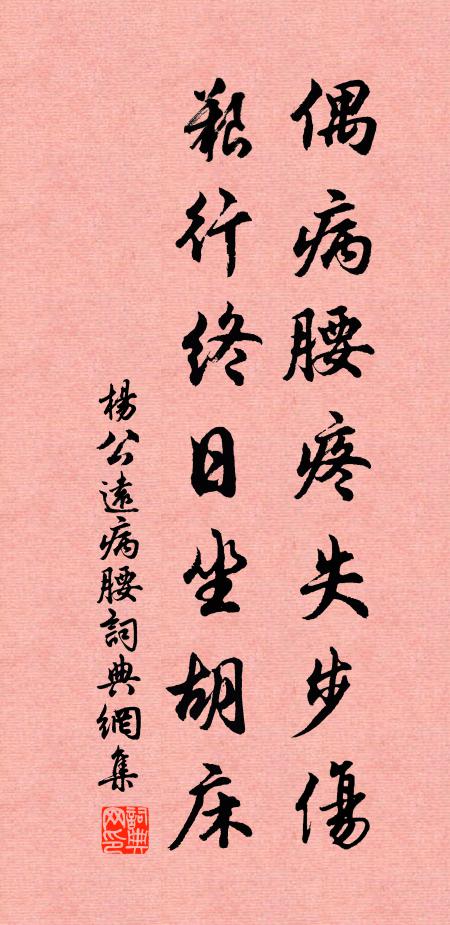 偶病腰疼失步傷
艱行終日坐胡床
楊公遠病腰詞典網集
詞典网印